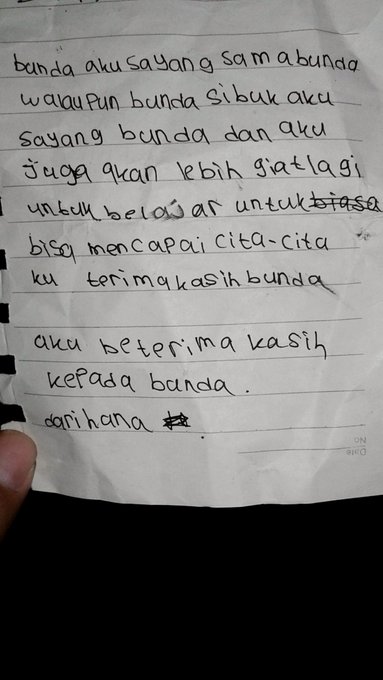 bunda aku sayang sama bunda
walaupun bunda sibuk aku
sayang bunda dan aku
juga akan lebih giat lagi
untuk belajar untuk biasa
bisa mencapai cita-cita
ku terima kasih bunda
aku beterima kasih
kepada bunda.
dari hana
No
Date